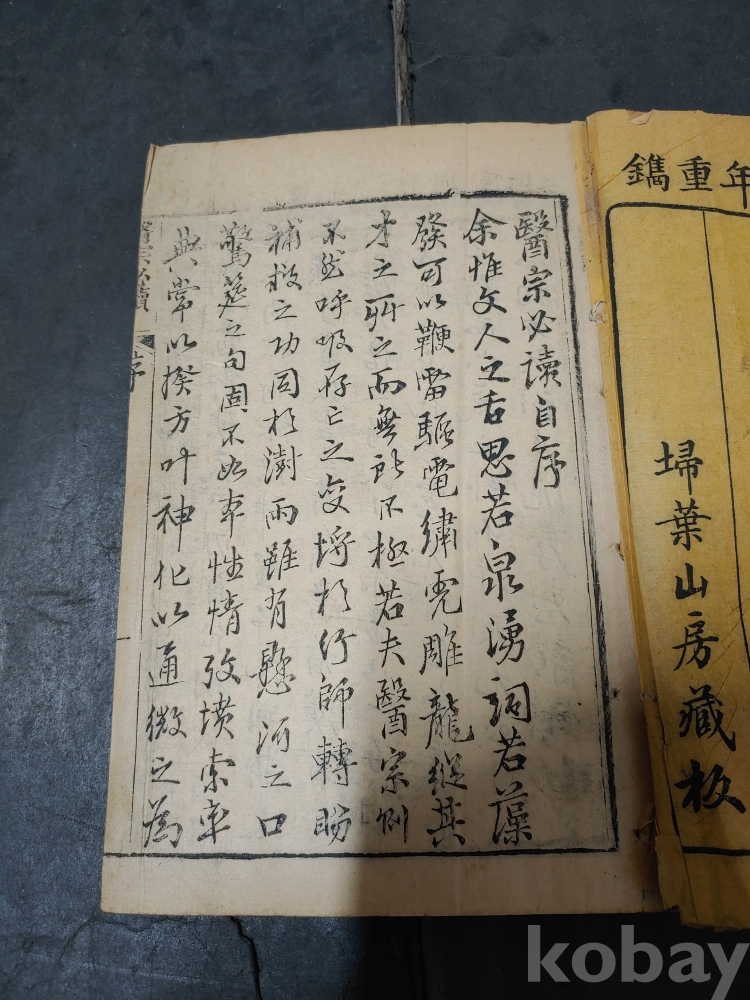 年重鐫
埽葉山房藏板
醫宗必讀自序
余惟文人之舌思若泉湧詞若藻
發可以鞭雷驅電繡虎雕龍縱其
才之所之而無所不極若夫醫宗則
不然呼吸存亡之变埒於行師轉盼
補救之功同於澍雨雖有懸河之口
驚筵之句固不如本性情攷墳索率
典常以揆方叶神化以通微之為
醫宗必讀 序
kobay